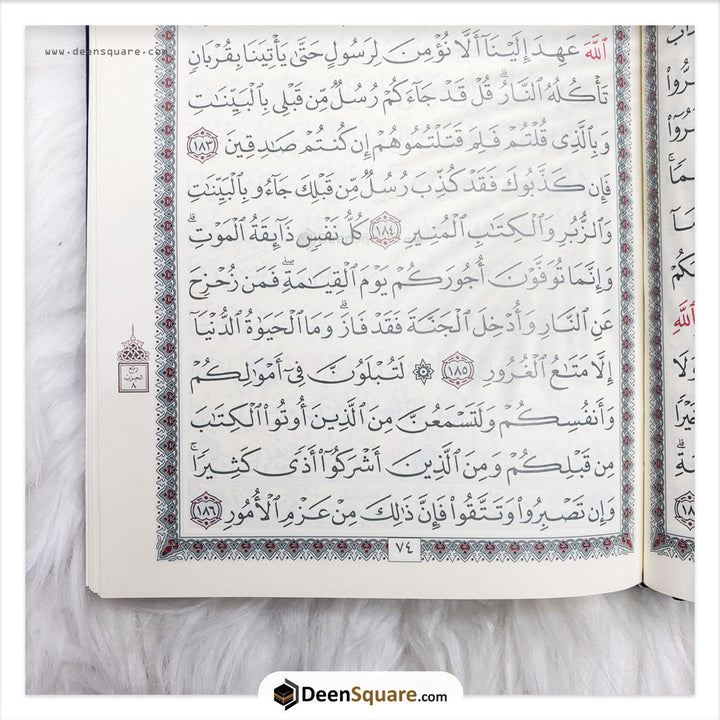 www.deensquare.com
ٱللَّهَ عَهِدَ إِلَيْنَآ أَلَّا نُؤْمِنَ لِرَسُولٍ حَتَّىٰ يَأْتِيَنَا بِقُرْبَانٍ
تَأْكُلُهُ ٱلنَّارُ ۗ قُلْ قَدْ جَآءَكُمْ رُسُلٌ مِّن قَبْلِى بِٱلْبَيِّنَٰتِ
وَبِٱلَّذِى قُلْتُمْ فَلِمَ قَتَلْتُمُوهُمْ إِن كُنتُمْ صَٰدِقِينَ ١٨٣
فَإِن كَذَّبُوكَ فَقَدْ كُذِّبَ رُسُلٌ مِّن قَبْلِكَ جَآءُو بِٱلْبَيِّنَٰتِ
وَٱلزُّبُرِ وَٱلْكِتَٰبِ ٱلْمُنِيرِ ١٨٤ كُلُّ نَفْسٍ ذَآئِقَةُ ٱلْمَوْتِ ۗ
وَإِنَّمَا تُوَفَّوْنَ أُجُورَكُمْ يَوْمَ ٱلْقِيَٰمَةِ ۖ فَمَن زُحْزِحَ
عَنِ ٱلنَّارِ وَأُدْخِلَ ٱلْجَنَّةَ فَقَدْ فَازَ ۗ وَمَا ٱلْحَيَوٰةُ ٱلدُّنْيَآ
إِلَّا مَتَٰعُ ٱلْغُرُورِ ١٨٥ ۞ لَتُبْلَوُنَّ فِىٓ أَمْوَٰلِكُمْ
وَأَنفُسِكُمْ وَلَتَسْمَعُنَّ مِنَ ٱلَّذِينَ أُوتُوا۟ ٱلْكِتَٰبَ
مِن قَبْلِكُمْ وَمِنَ ٱلَّذِينَ أَشْرَكُوٓا۟ أَذًى كَثِيرًا ۚ
وَإِن تَصْبِرُوا۟ وَتَتَّقُوا۟ فَإِنَّ ذَٰلِكَ مِنْ عَزْمِ ٱلْأُمُورِ ١٨٦
ربع
الحزب
٨
٧٤
ٱللَّهِ
DeenSquare.com